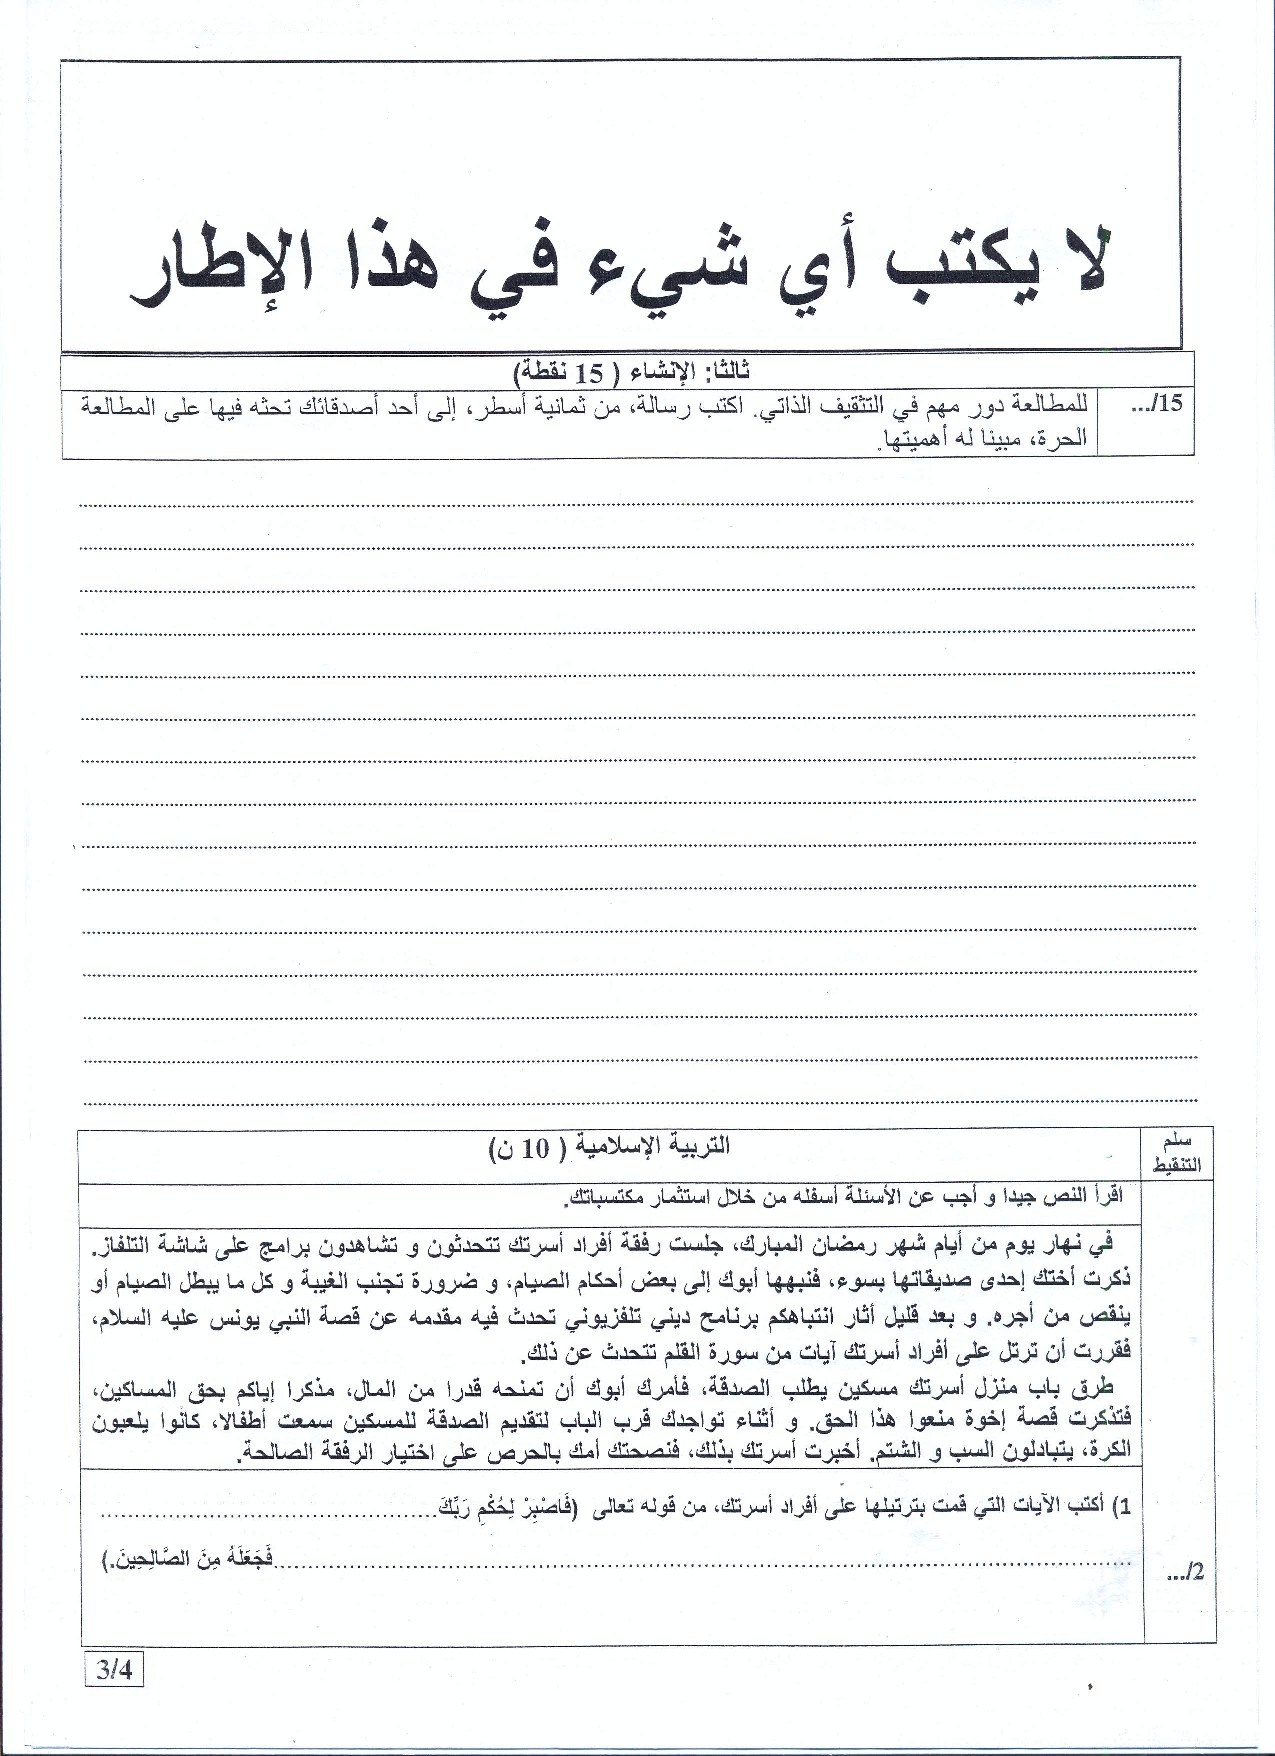 لا يكتب أي شيء في هذا الإطار
ثالثا: الإنشاء ( 15 نقطة)
.../15
للمطالعة دور مهم في التثقيف الذاتي. اكتب رسالة، من ثمانية أسطر، إلى أحد أصدقائك تحثه فيها على المطالعة
الحرة، مبينا له أهميتها.
سلم
التنقيط
التربية الإسلامية ( 10 ن)
اقرأ النص جيدا و أجب عن الأسئلة أسفله من خلال استثمار مكتسباتك.
في نهار يوم من أيام شهر رمضان المبارك، جلست رفقة أفراد أسرتك تتحدثون و تشاهدون برامج على شاشة التلفاز.
ذكرت أختك إحدى صديقاتها بسوء، فنبهها أبوك إلى بعض أحكام الصيام، و ضرورة تجنب الغيبة و كل ما يبطل الصيام أو
ينقص من أجره. و بعد قليل أثار انتباهكم برنامج ديني تلفزيوني تحدث فيه مقدمه عن قصة النبي يونس عليه السلام،
فقررت أن ترتل على أفراد أسرتك آيات من سورة القلم تتحدث عن ذلك.
طرق باب منزل أسرتك مسكين يطلب الصدقة، فأمرك أبوك أن تمنحه قدرا من المال، مذكرا إياكم بحق المساكين،
فتذكرت قصة إخوة منعوا هذا الحق. و أثناء تواجدك قرب الباب لتقديم الصدقة للمسكين سمعت أطفالا، كانوا يلعبون
الكرة، يتبادلون السب و الشتم. أخبرت أسرتك بذلك، فنصحتك أمك بالحرص على اختيار الرفقة الصالحة.
1) أكتب الآيات التي قمت بترتيلها على أفراد أسرتك، من قوله تعالى (فَاصْبِرْ لِحُكْمِ رَبِّكَ......................................
......................................فَجَعَلَهُ مِنَ الصَّالِحِينَ.)
.../2
3/4